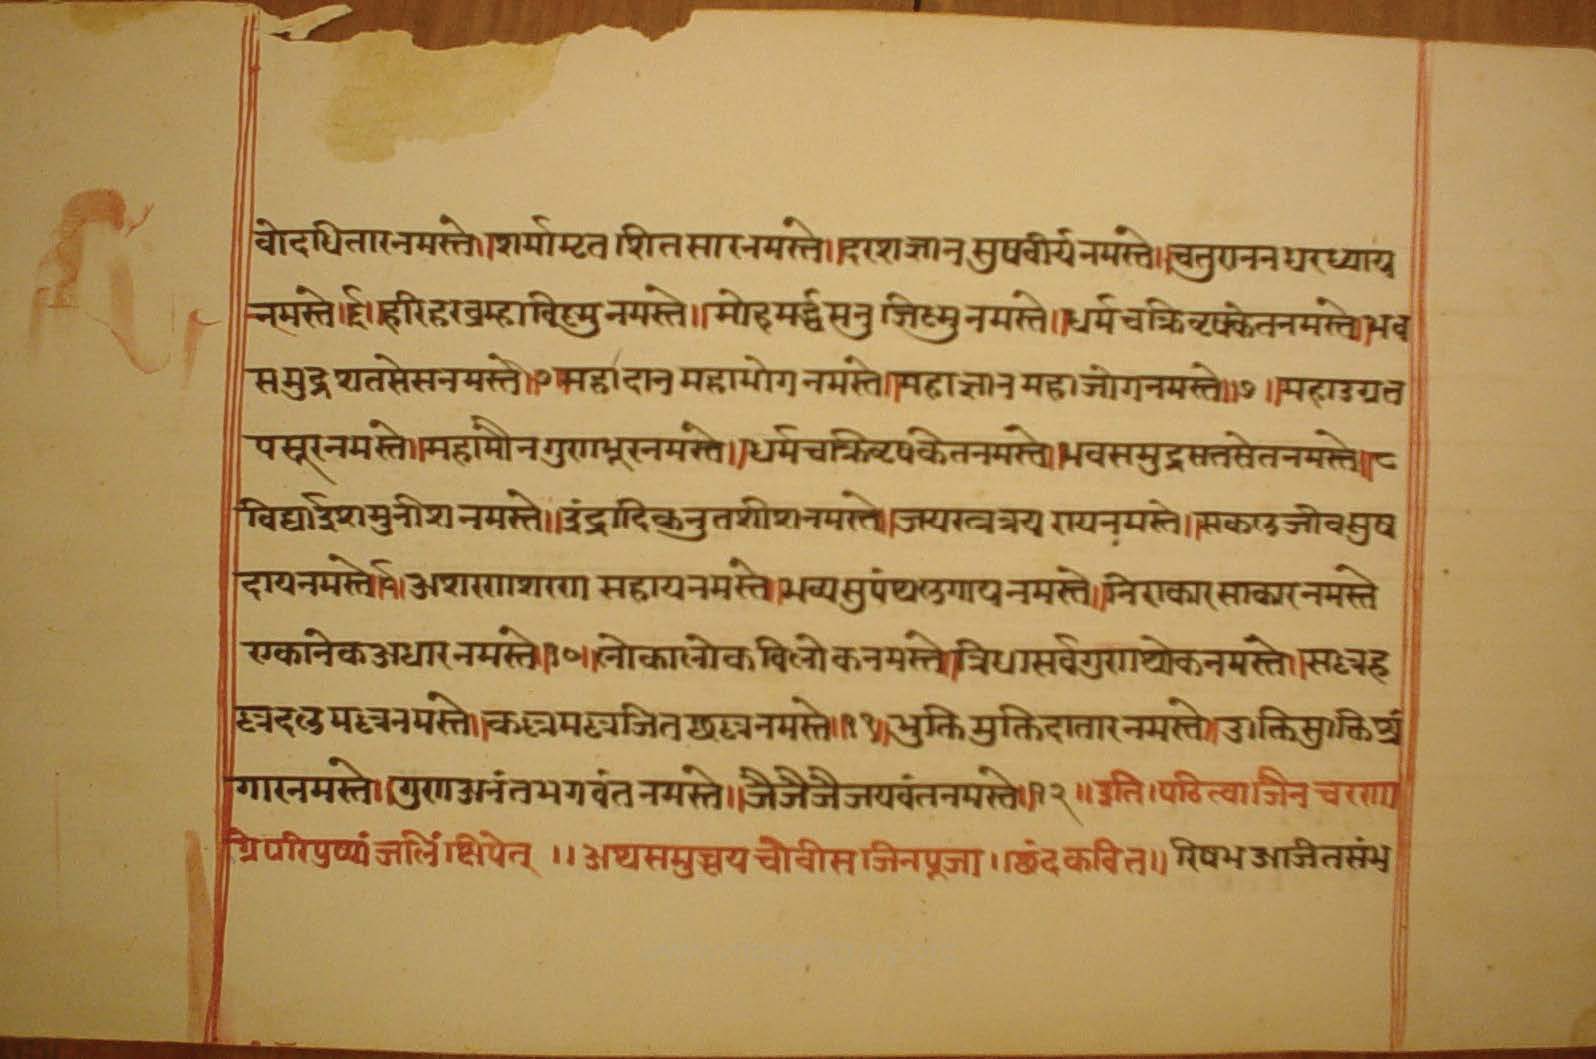 वोदधितारनमस्ते॥शर्मामृतशितसारनमस्ते॥दरशज्ञानसुषवीर्यनमस्ते॥चतुराननधरध्याय
नमस्ते॥६॥हरिहरब्रम्हाविष्णुनमस्ते॥मोहमर्द्दसनुजिष्णुनमस्ते॥धर्मचक्रिवृषकेतनमस्ते॥भव
समुद्रशतसेसनमस्ते॥७॥महादानमहाभोगनमस्ते॥महाज्ञानमहाजोगनमस्ते॥७॥महाउग्रत
पसूरनमस्ते॥महामौनगुणभूरनमस्ते॥धर्मचक्रिवृषकेतनमस्ते॥भवसमुद्रसतसेतनमस्ते॥८
विद्याईशमुनीशनमस्ते॥इंद्रादिकनुतशीशनमस्ते॥जयरत्नत्रयरायनमस्ते॥सकलजीवसुष
दायनमस्ते॥९॥अशरणशरणसहायनमस्ते॥भव्यसुपंथलगायनमस्ते॥निराकारसाकारनमस्ते
एकानेकअधारनमस्ते॥१०॥लोकालोकविलोकनमस्ते॥त्रिधासर्वगुणथोकनमस्ते॥सल्लह
ल्लदलमल्लनमस्ते॥कल्लमल्लजितछल्लनमस्ते॥११॥भुक्तिमुक्तिदातारनमस्ते॥उक्तिसुक्तिश्रं
गारनमस्ते॥गुणअनंतभगवंतनमस्ते॥जैजैजैजयवंतनमस्ते॥१२॥इति।पठित्वाजिनचरणा
ग्रेपरिपुष्पांजलिंक्षिपेत्॥अथसमुच्चयचौवीसजिनपूजा॥छंदकवित॥रिषभअजितसंभ